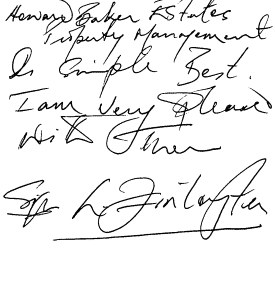 Howard Baker Estates
Property Management
Is Simple Best.
I am very Please
with
Sgn L.